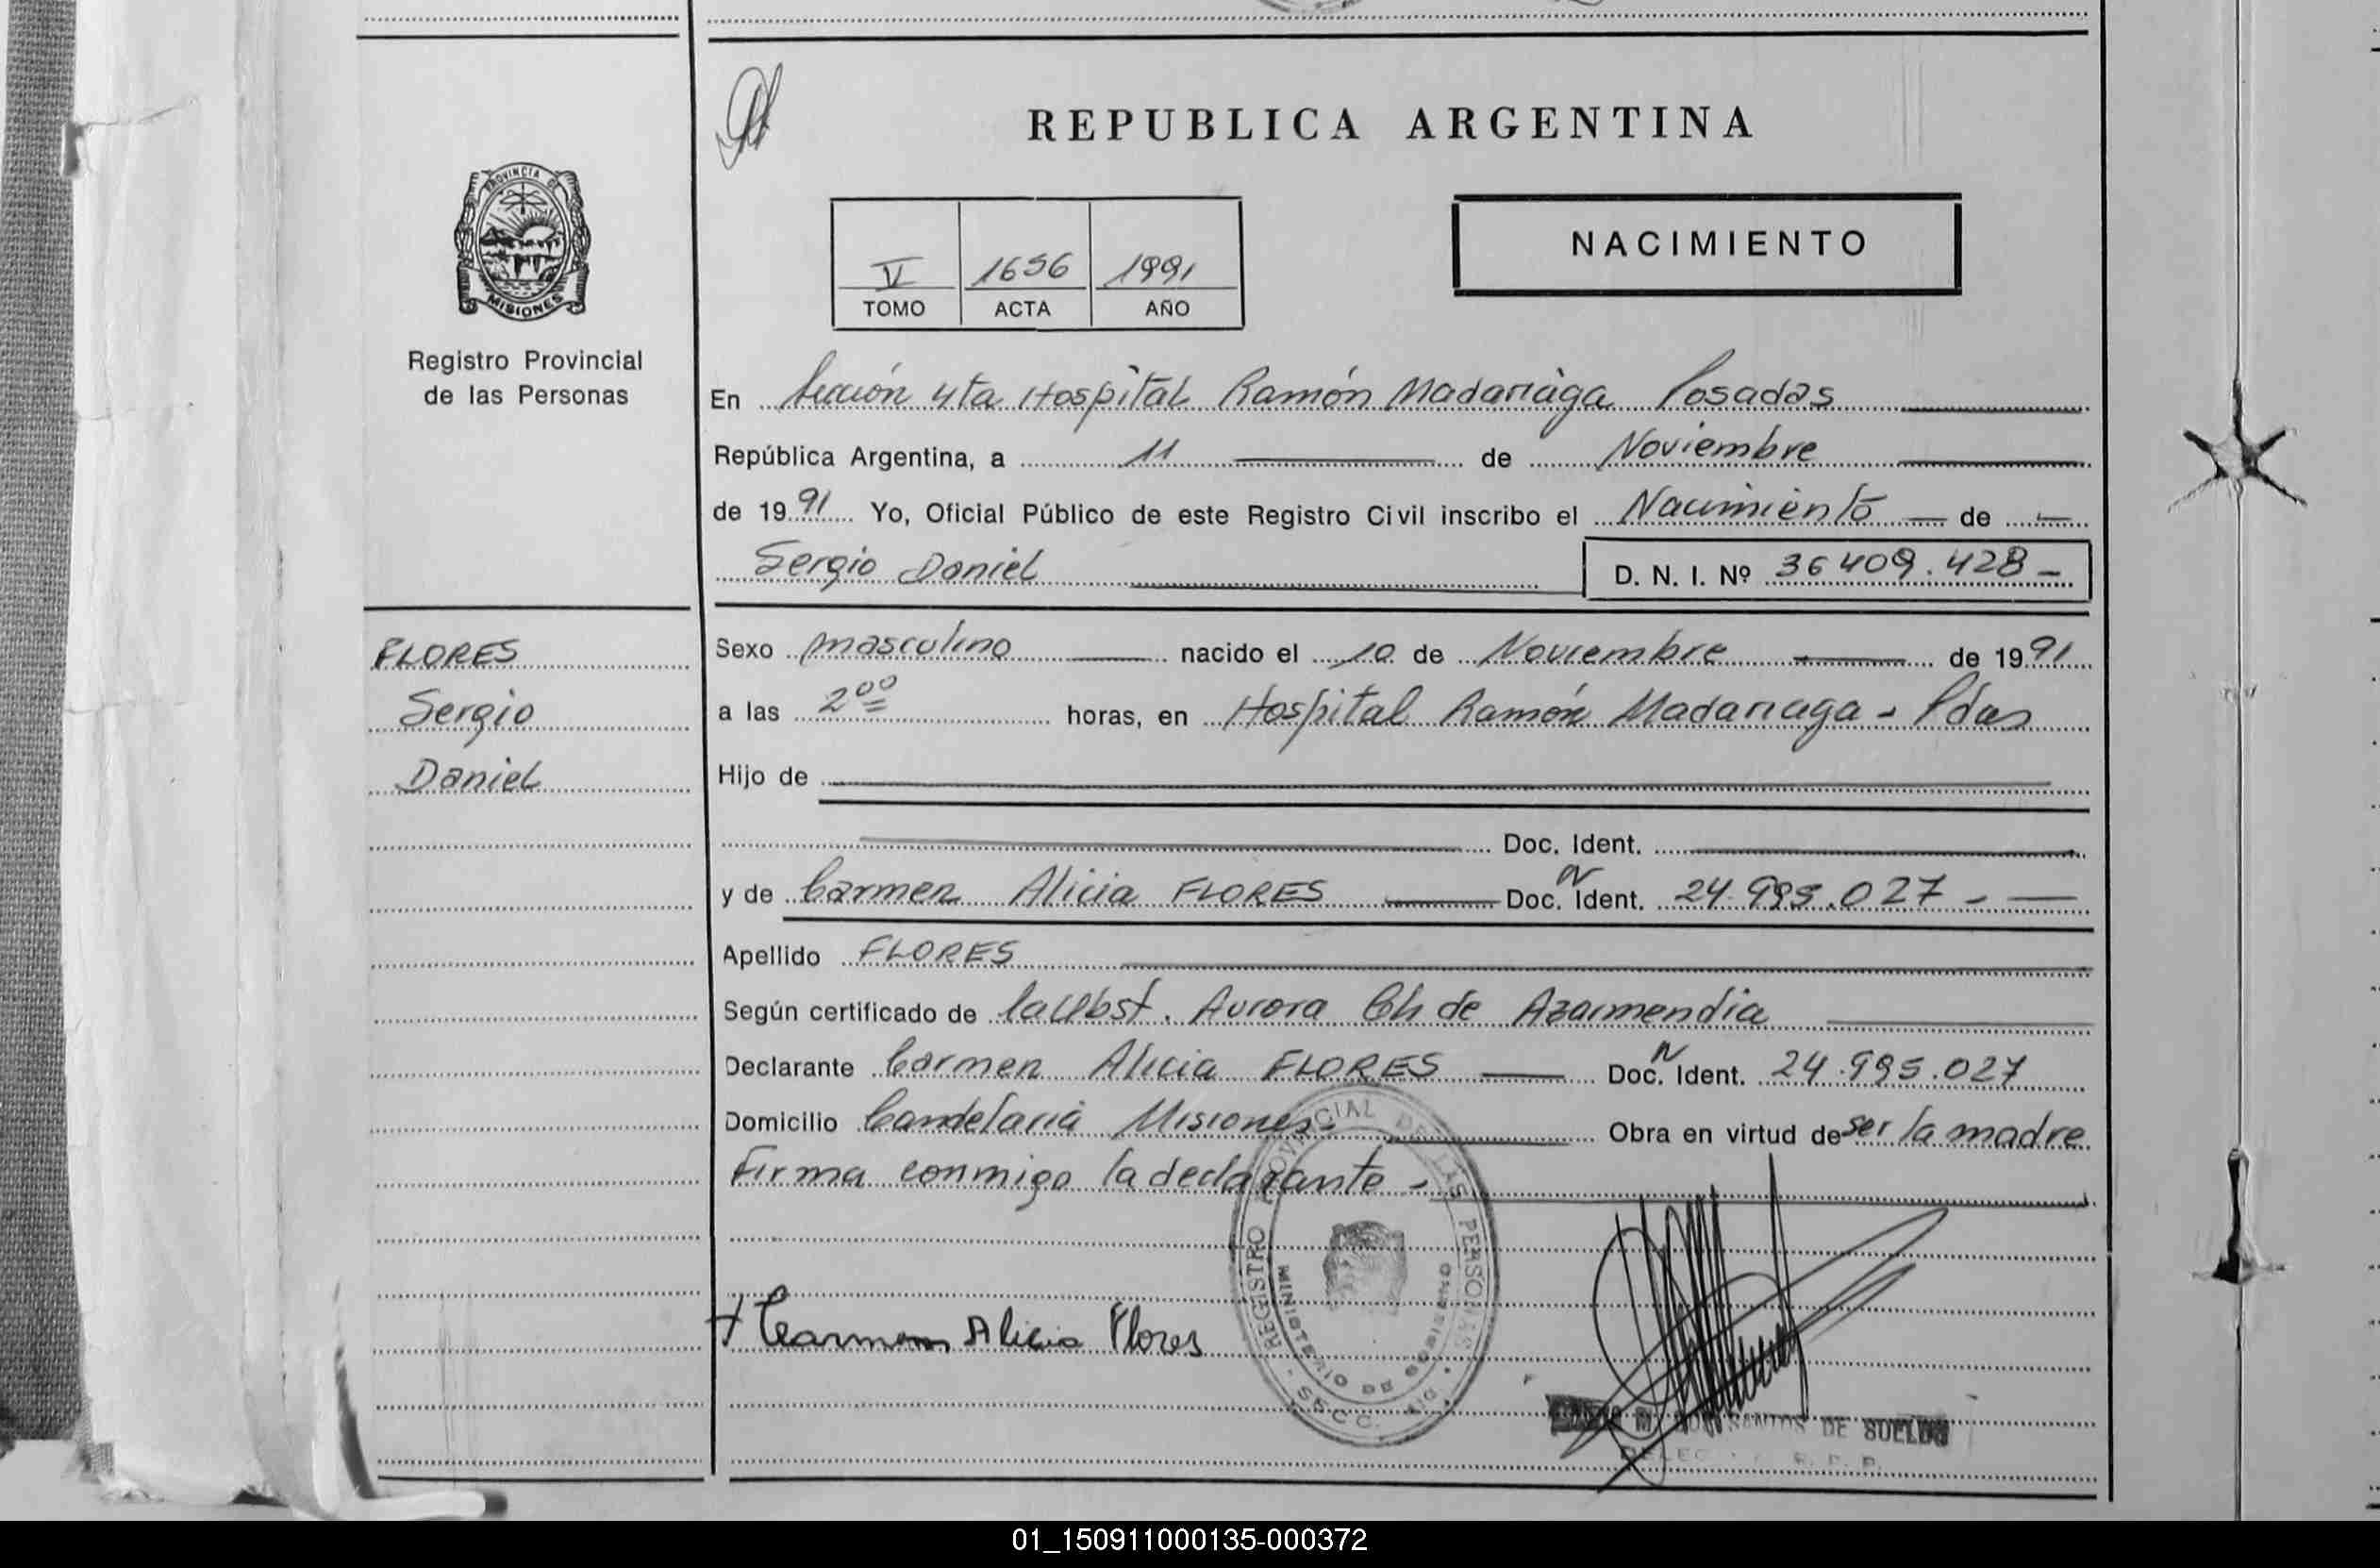 REPUBLICA ARGENTINA
PROVINCIA DE
MISIONES
Registro Provincial
de las Personas
V 1656 1991
TOMO ACTA AÑO
NACIMIENTO
En Sección 4ta Hospital Ramón Madariaga Posadas
República Argentina, a 11 de Noviembre
de 1991 Yo, Oficial Público de este Registro Civil inscribo el Nacimiento de
Sergio Daniel D. N. I. Nº 36 409.428
FLORES
Sergio
Daniel
Sexo masculino nacido el 10 de Noviembre de 1991
a las 2 00 horas, en Hospital Ramón Madariaga - Pdas
Hijo de
Doc. Ident.
y de Carmen Alicia FLORES Doc. N Ident. 24.995.027
Apellido FLORES
Según certificado de la Obst. Aurora Ch de Azarmendia
Declarante Carmen Alicia FLORES Doc. N Ident. 24.995.027
Domicilio Candelaria Misiones Obra en virtud de ser la madre
Firma conmigo la declarante
REGISTRO PROVINCIAL DE LAS PERSONAS
MINISTERIO DE GOBIERNO
SECC.
Carmen Alicia Flores
SANTOS DE SUELDO
R. P. P.
01_150911000135-000372